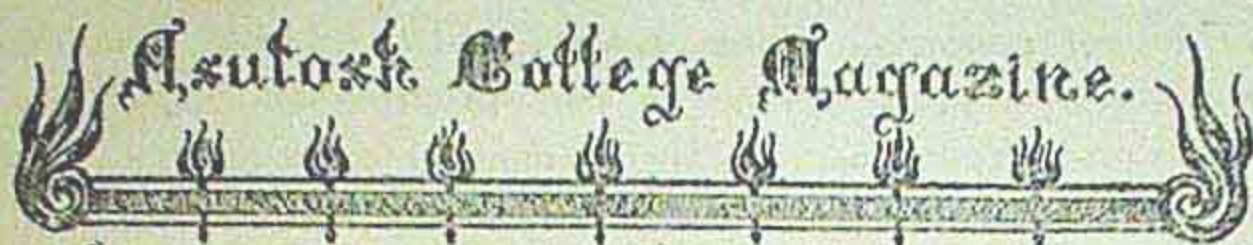 Asutosh College Magazine.